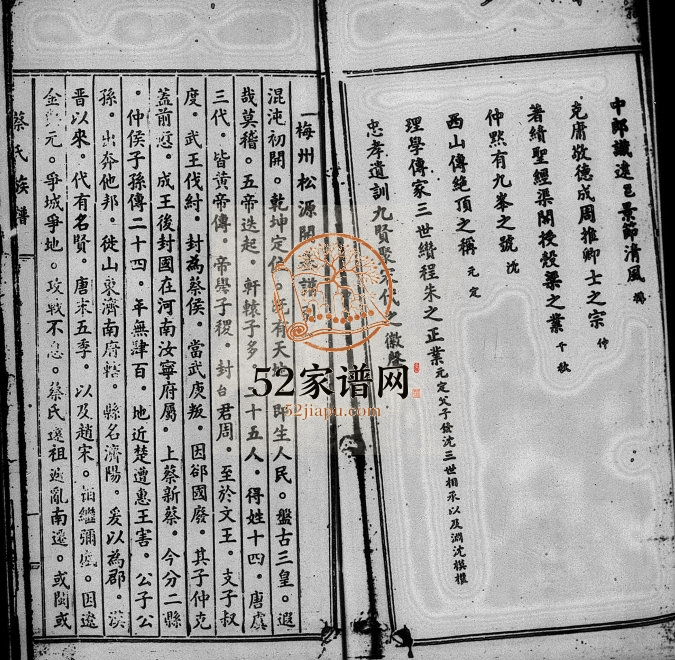 中郎識遠邑景節清風
克庸敬德成周推卿士之宗 仲
著績聖經渠閣授穀梁之業 千秋
仲然有九峯之號 沈
西山傳絕頂之稱 元定
理學傳家三世纘程朱之正業 元定父子發沈三世相承以及淵沈模權
忠孝遺訓九賢聚 代之徽
梅州松源開基譜
混沌初開。乾坤定位。既有天地。即生人民。盤古三皇。遐
哉莫稽。五帝迭起。軒轅子多。二十五人。得姓十四。唐虞
三代。皆黃帝傳。帝嚳子稷。封台君周。至於文王。支子叔
度。武王伐紂。封為蔡侯。當武庚叛。因郤國廢。其子仲克
蓋前愆。成王後封國在河南汝寧府屬。上蔡新蔡。今分二縣
。仲侯子孫傳二十四。年無肆百。地近楚遭惠王害。公子公
孫。出奔他邦。徙山東濟南府轄。縣名濟陽。爰以為郡。漢
晋以來。代有名賢。唐末五季。以及趙宋。 繼彌 。因遼
金 元。爭城爭地。攻戰不息。蔡氏 祖避亂南遷。或閩或
蔡氏族譜
52家谱网
52jiapu.com